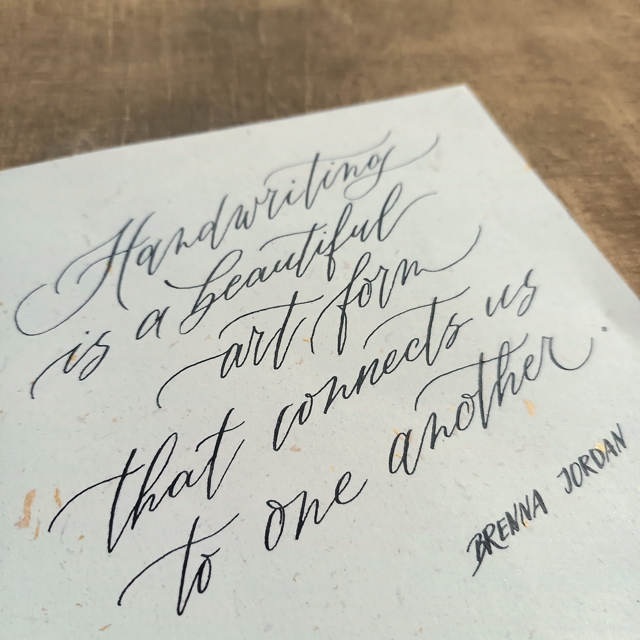 Handwriting
is a beautiful
art form
that connects us
to one another
BRENNA JORDAN